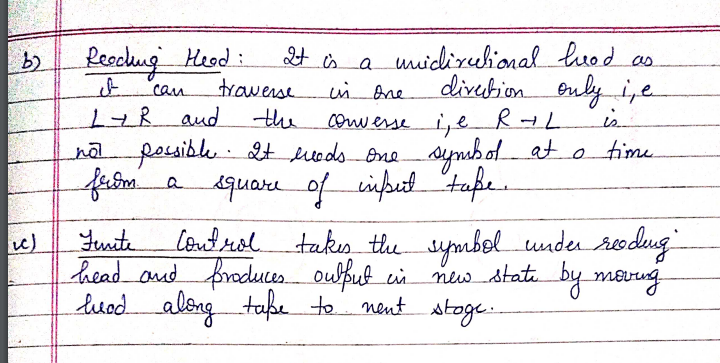 b) Reading Head: It is a unidirectional head as
it can traverse in one direction only i,e
L → R and the converse i,e R → L is
not possible. It reads one symbol at a time
from a square of input tape.
c) Finite Control takes the symbol under reading
head and produces output in new state by moving
head along tape to next stage.